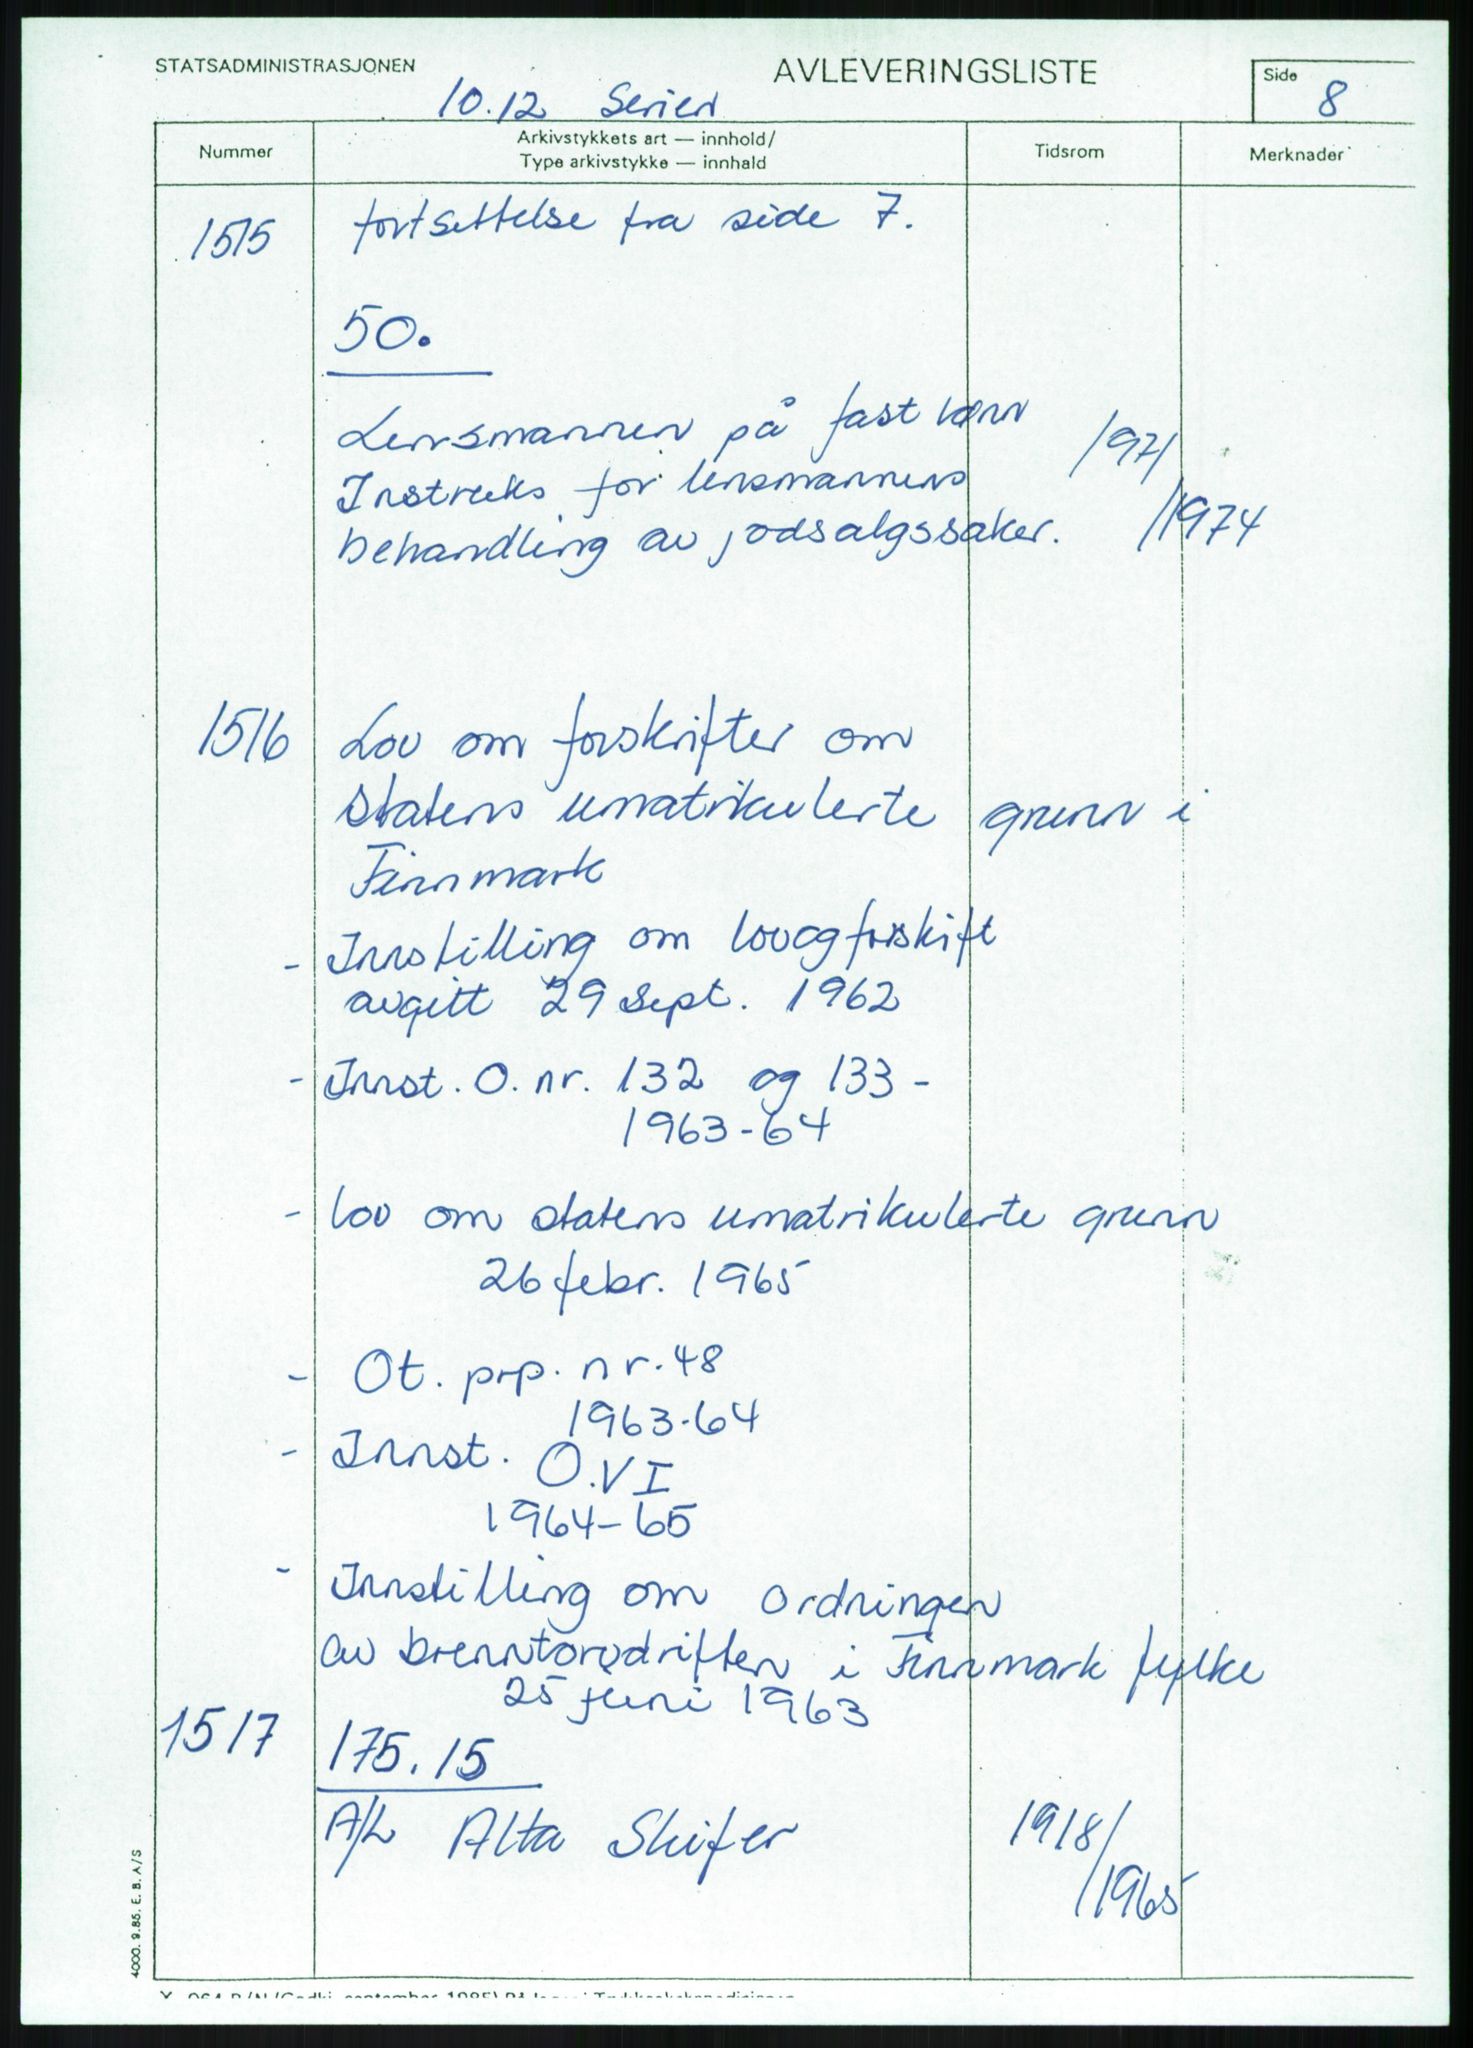 STATSADMINISTRASJONEN
AVLEVERINGSLISTE
Side
8
10.12 Serien
Nummer
Arkivstykkets art — innhold/
Type arkivstykke — innhald
Tidsrom
Merknader
1515
fortsettelse fra side 7.
50.
Lensmannen på fast lønn
1971
Instruks for lensmannens
behandling av jordsalgssaker.
/1974
1516
Lov om forskrifter om
statens umatrikulerte grunn i
Finnmark
- Innstilling om lov og forskift
avgitt 29 sept. 1962
- Innst. O. nr. 132 og 133 -
1963-64
- lov om statens umatrikulerte grunn
26 febr. 1965
- Ot. prp. nr. 48
1963-64
- Innst. O. VI
1964-65
- Innstilling om ordningen
av brenntorvdriften i Finnmark fylke
25 juni 1963
1517
175.15
A/L Alta Skifer
1918/
/1965
4000. 9.85. E. B. A/S